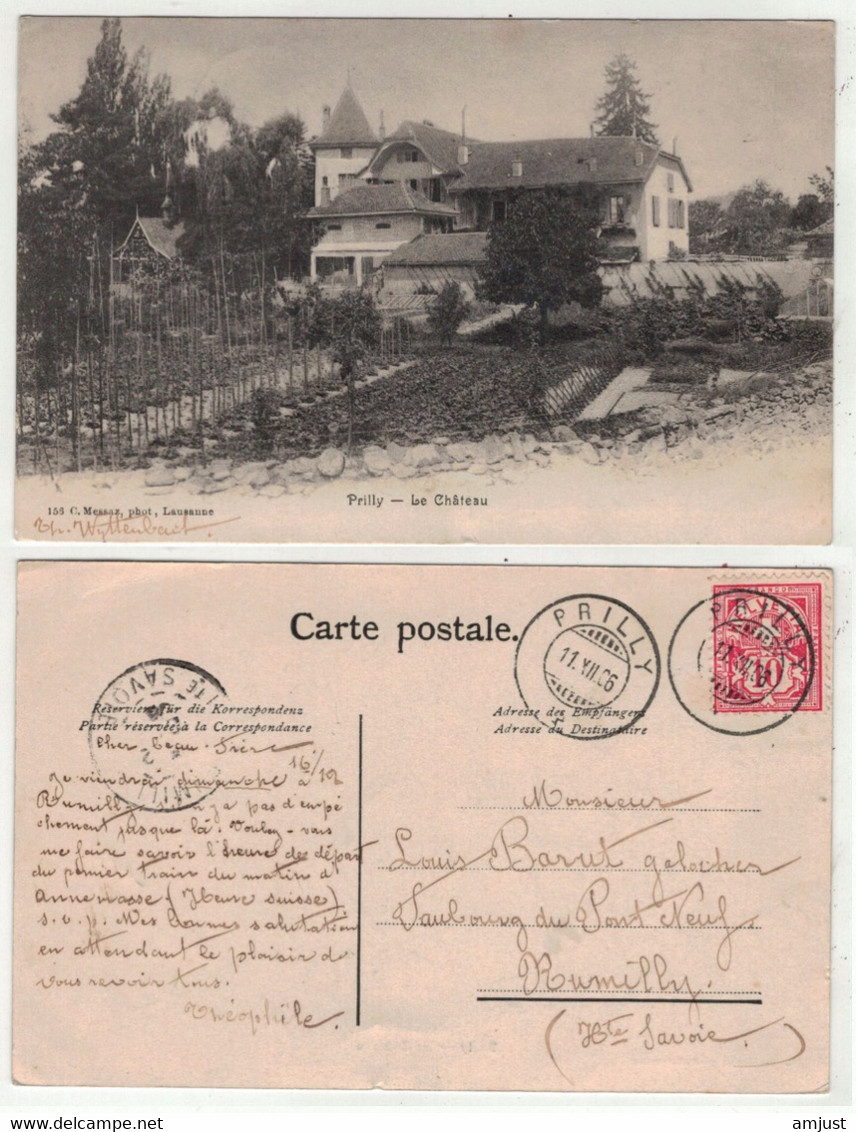 Prilly — Le Château
156 C. Messaz, phot, Lausanne
Th. Wyttenbach
Carte postale.
PRILLY
11.XII.06
PRILLY
11.XII.06
HELVETIA
10
HTE SAVOIE
RUMILLY
Reserviert für die Korrespondenz
Partie réservée à la Correspondance
Adresse des Empfängers
Adresse du Destinataire
Cher Beau-Frère
Je viendrai dimanche 16/12 à
Rumilly s'il n'y a pas d'empê
chement jusque là. Voulez-vous
me faire savoir l'heure de départ
du premier train du matin d
Annemasse (Heure suisse)
s.v.p. Mes bonnes salutations
en attendant le plaisir d
vous revoir tous.
Théophile.
Monsieur
Louis Barut galocher
Faubourg du Pont Neuf
Rumilly.
(Hte Savoie)
amjust